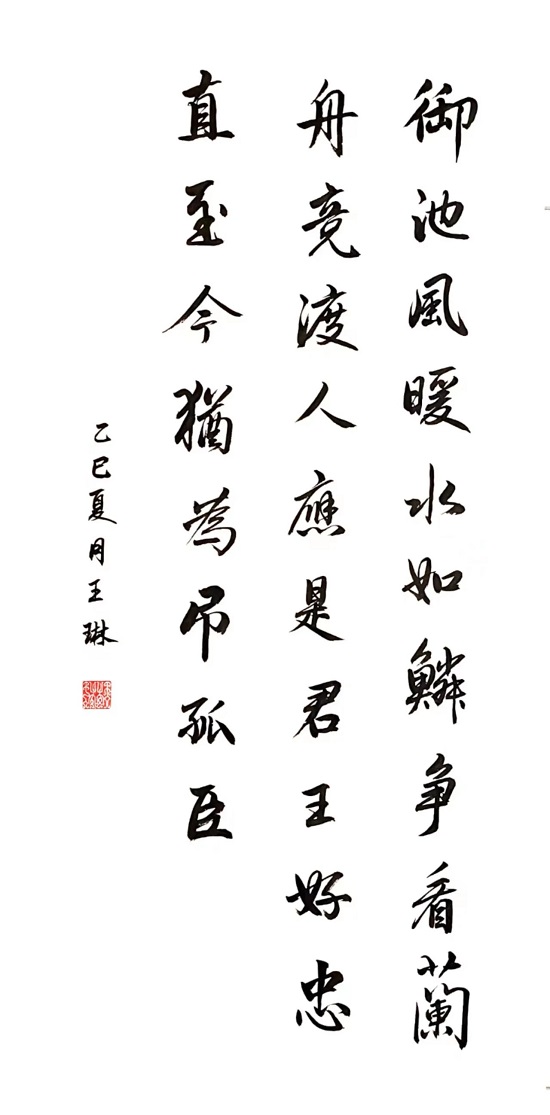 御池風暖水如鱗争看蘭
舟竞渡人應是君王好忠
直至今猶為吊孤臣
乙巳夏月王琳